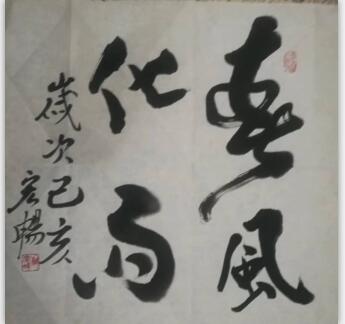 春風
化雨
歲次己亥
宏暢